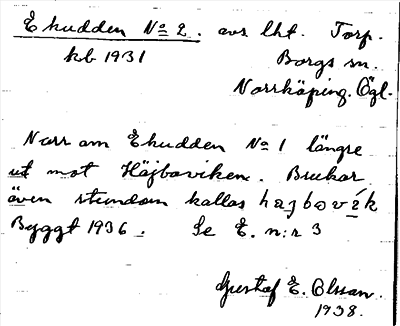 Ekudden No 2. avs lht. Torp.
kb 1931 Borgs sn.
Norrköping. Ögl.
Norr om Ekudden No 1 längre
ut mot Höjboviken. Brukar
även stundom kallas hajbovik
Byggt 1936. Se E. n:r 3
Gustaf E. Olsson.
1938.